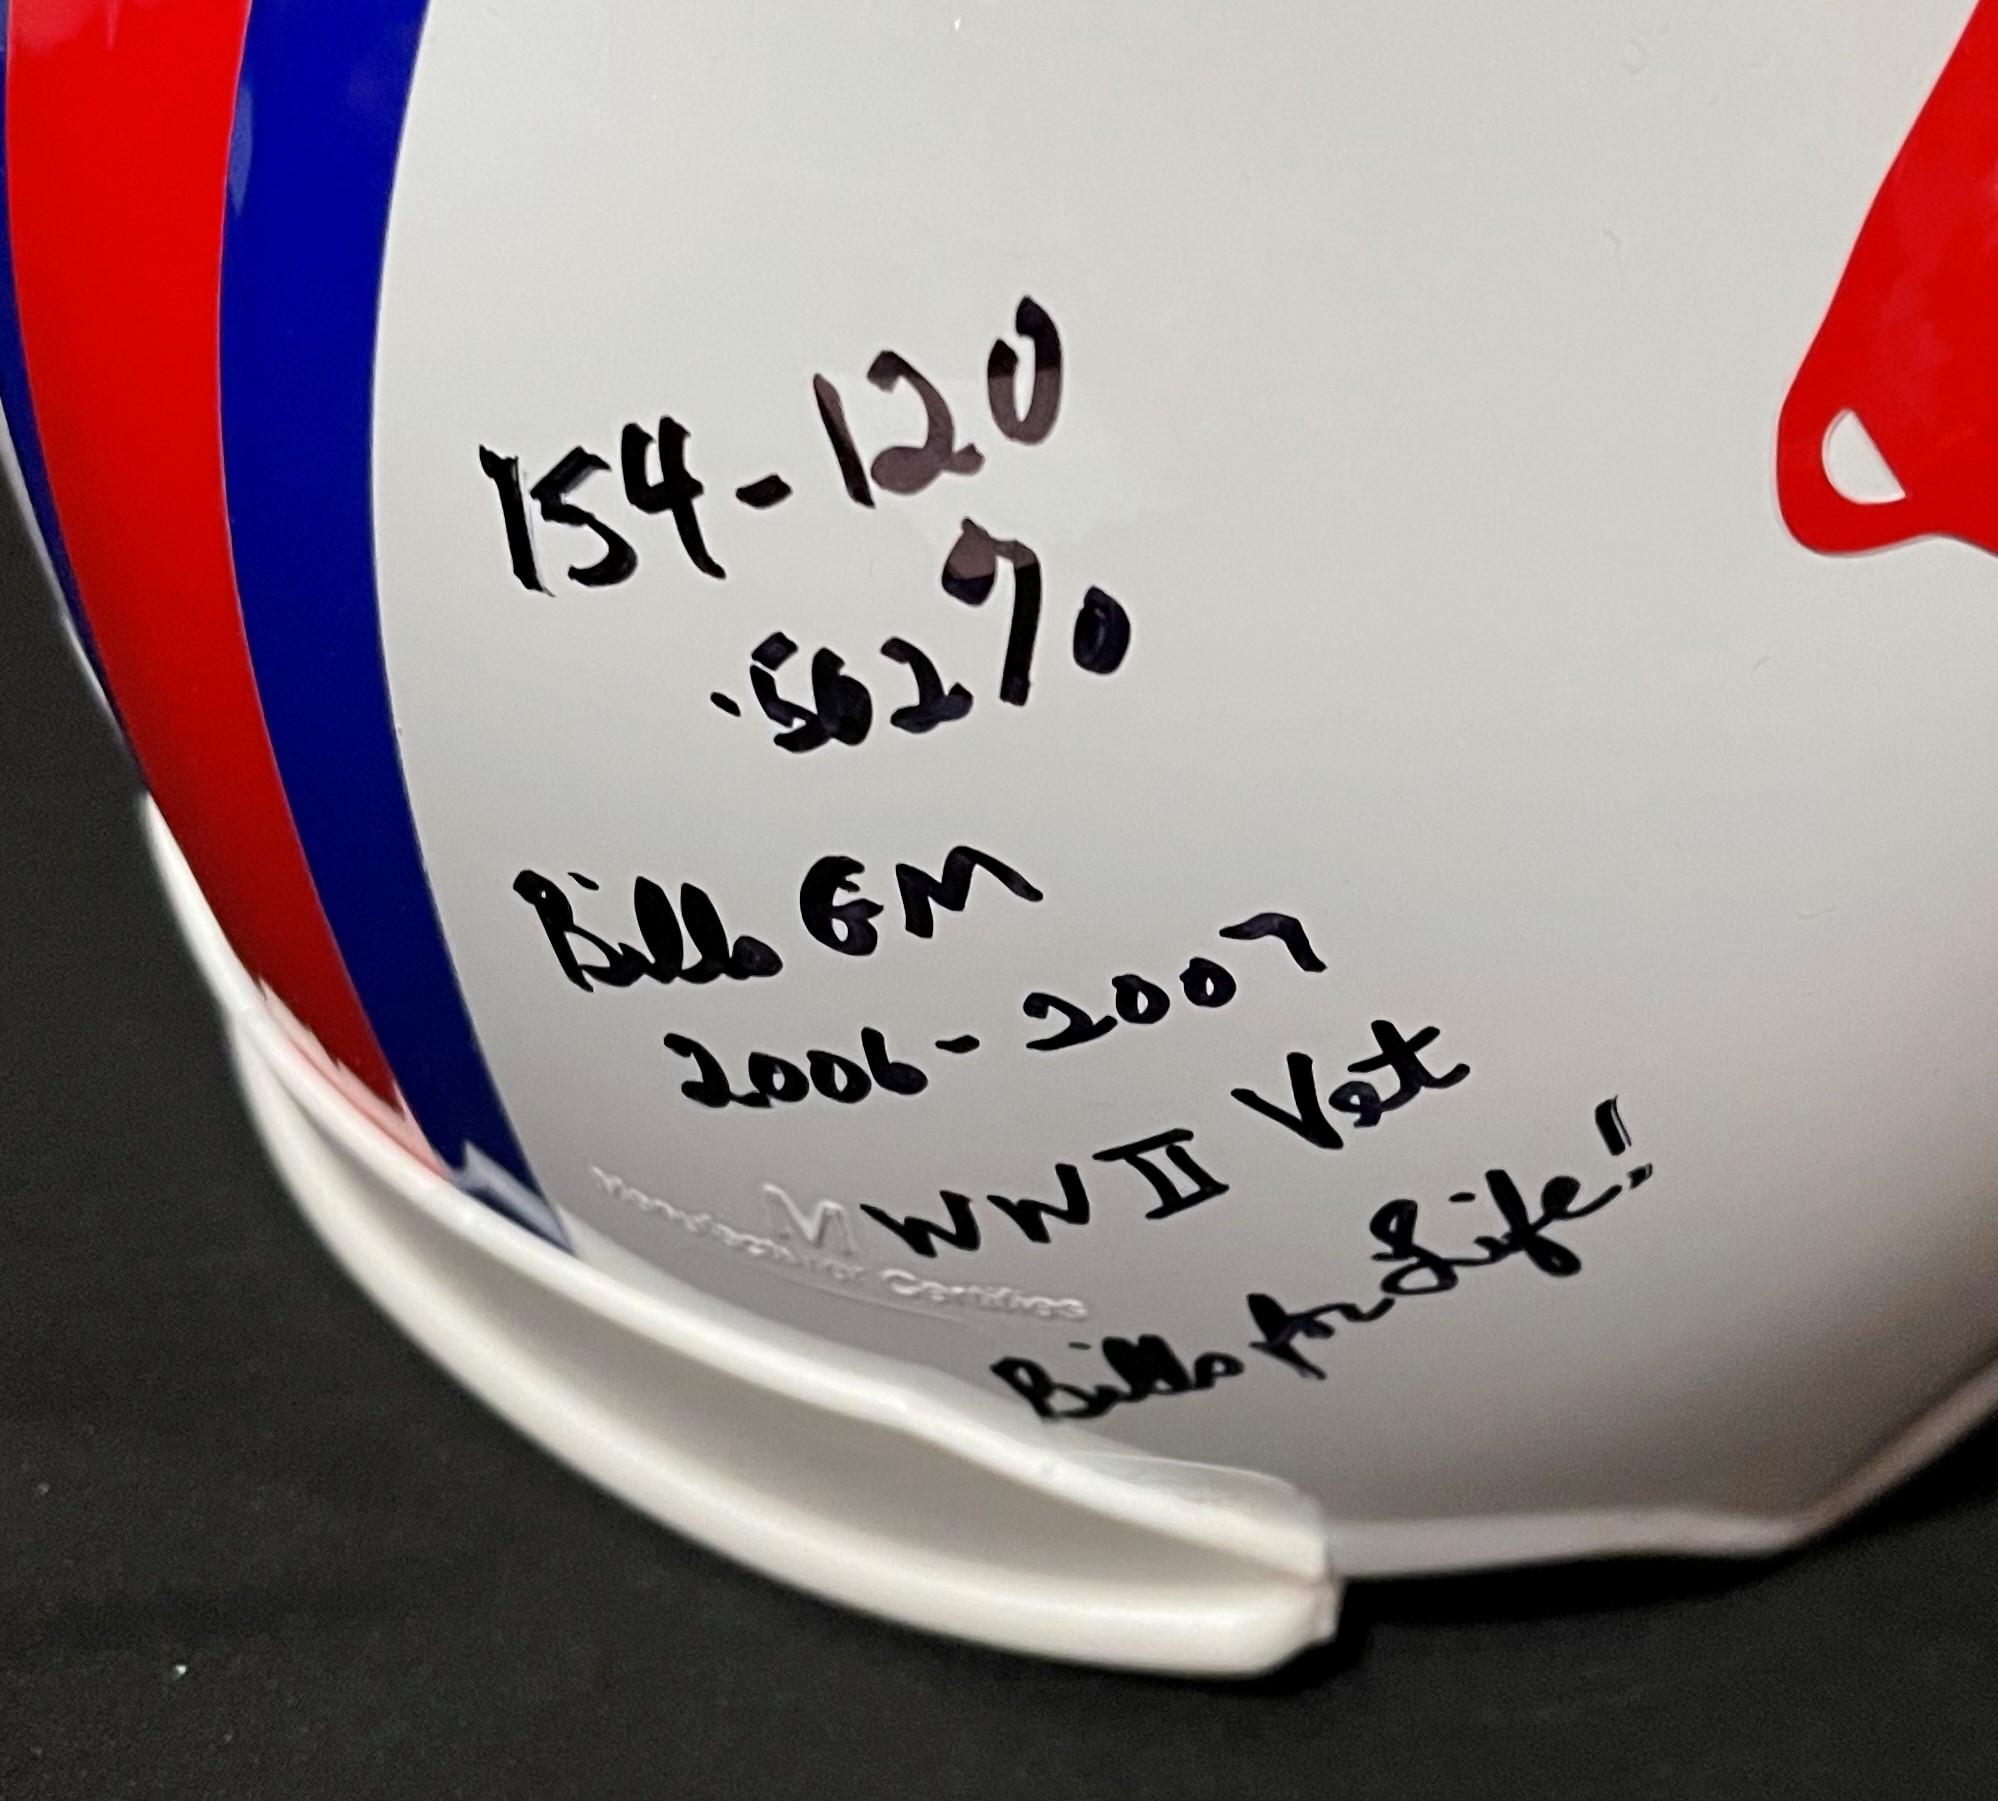 154-120
.562%
Bills GM
2006-2007
WWII Vet
Bills for Life!!
M
Manufacturer Certifies